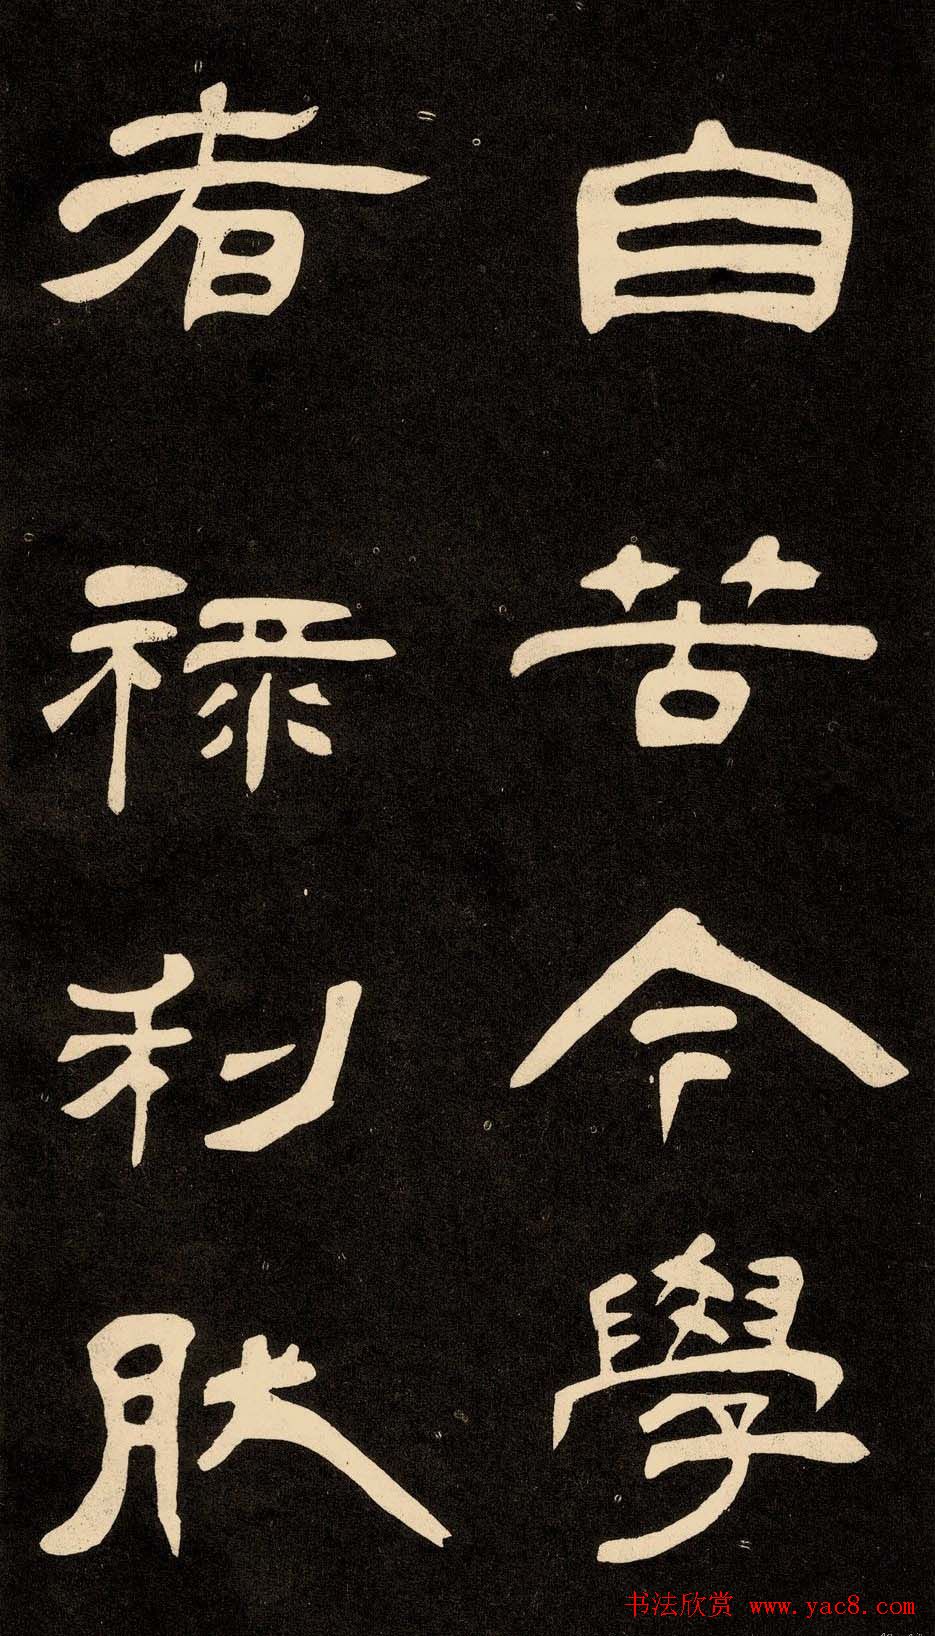 自苦今學
者祿利肰
书法欣赏 www.yac8.com